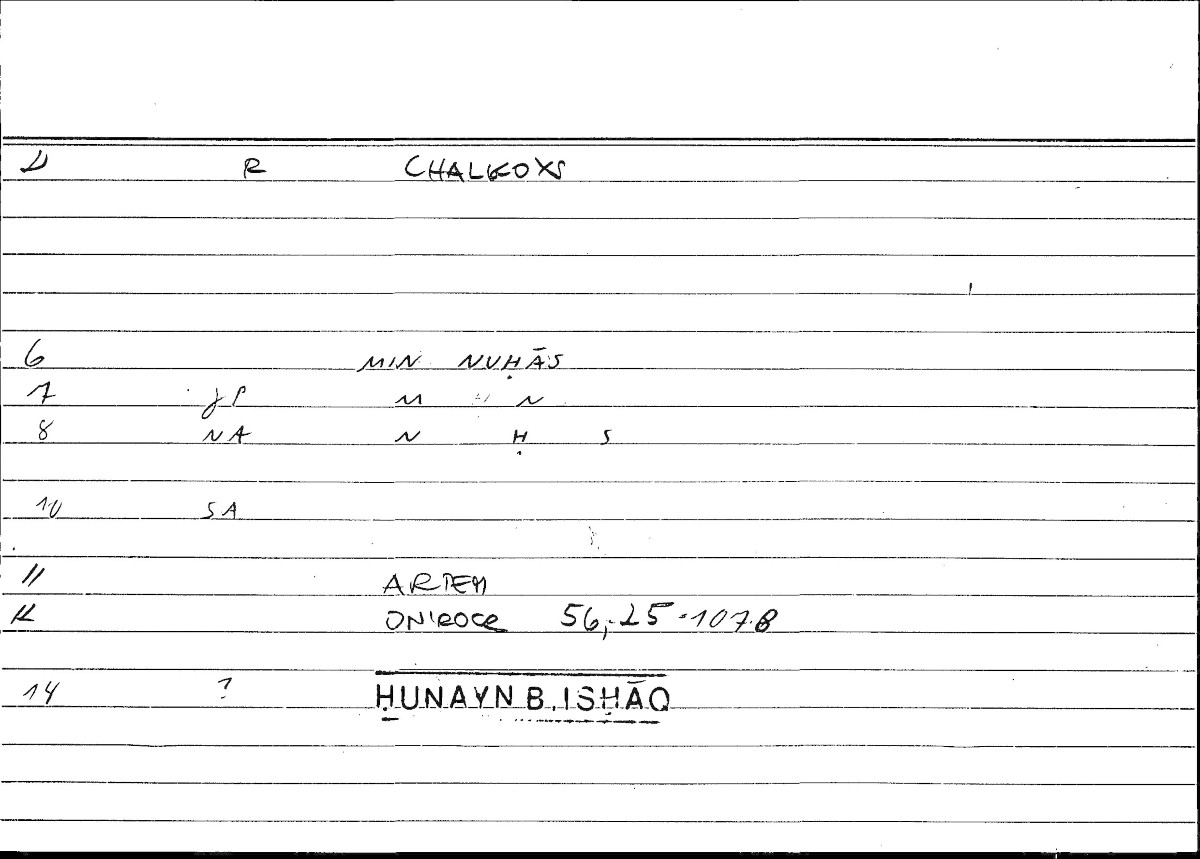 D R CHALKOYS
6 MIN NUḤĀS
7 JP M N
8 NA N Ḥ S
10 SA
11 ARTEM
12 ONIROCR 56,25 = 107.8
14 ? ḤUNAYN B. ISḤĀQ